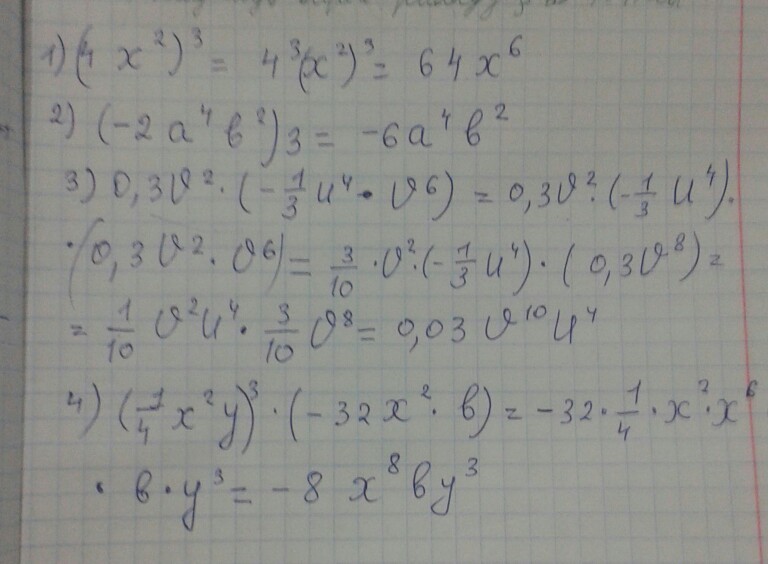 1) (4 x²)³ = 4³(x²)³ = 64x⁶
2) (-2a⁴b²)3 = -6a⁴b²
3) 0,3v²·(-1/3 u⁴·v⁶) = 0,3v²·(-1/3 u⁴)·
·(0,3v²·v⁶) = 3/10·v²·(-1/3 u⁴)·(0,3v⁸) =
= 1/10 v²u⁴·3/10 v⁸ = 0,03 v¹⁰u⁴
4) (1/4 x²y)³·(-32x²·b) = -32·1/4·x²·x⁶
· b·y³ = -8 x⁸by³